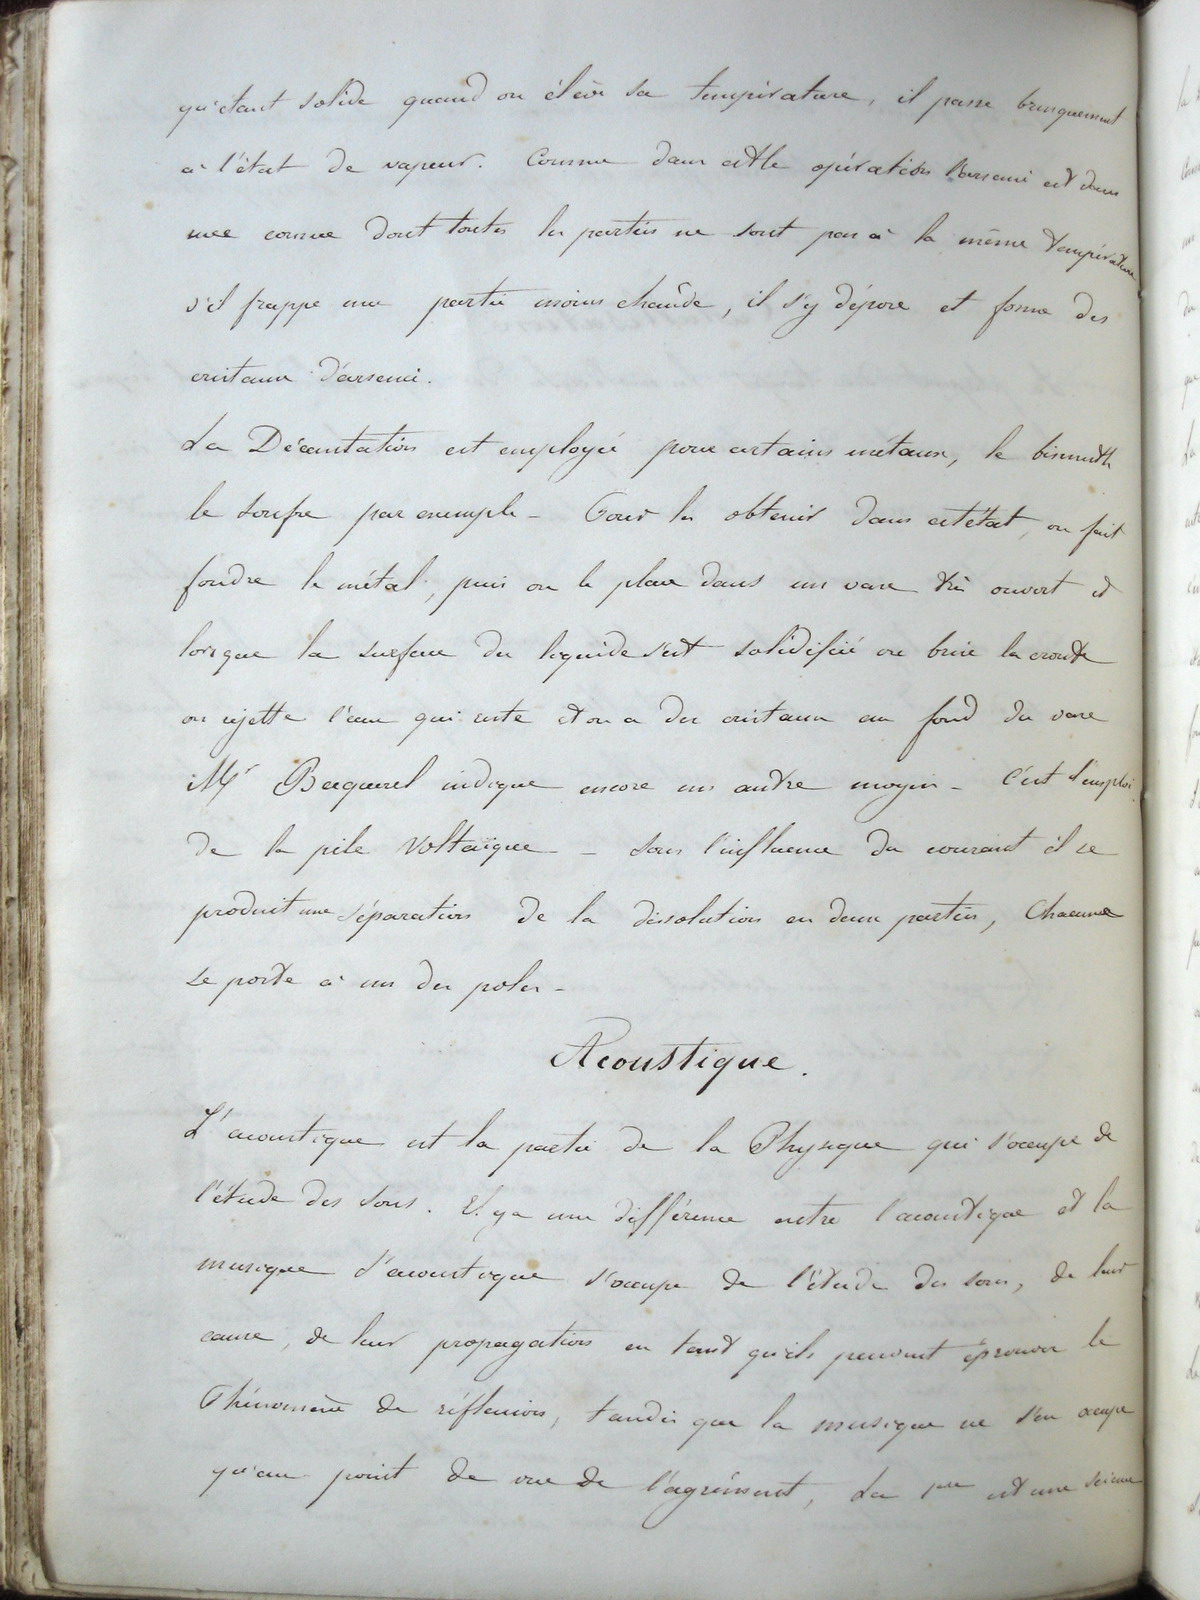 qu'étant solide quand on élève sa température, il passe brusquement
à l'état de vapeur. Comme dans cette opération l'arsenic est dans
une cornue dont toutes les parties ne sont pas à la même température
s'il frappe une partie moins chaude, il s'y dépose et forme des
cristaux d'arsenic.
La Décantation est employée pour certains métaux, le bismuth
le soufre par exemple - Pour les obtenir dans cet état, on fait
fondre le métal, puis on le place dans un vase très ouvert et
lorsque la surface du liquide s'est solidifiée on brise la croute
on rejette l'eau qui reste et on a des cristaux au fond du vase
Mr Becquerel indique encore un autre moyen - C'est l'emploi
de la pile Voltaïque - Sous l'influence du courant il se
produit une séparation de la dissolution en deux parties, Chacune
se porte à un des poles -
Acoustique.
L'acoustique est la partie de la Physique qui s'occupe de
l'étude des sons. Il y a une différence entre l'acoustique et la
musique l'acoustique s'occupe de l'étude des sons, de leur
cause, de leur propagation en tant qu'ils peuvent éprouver le
Phénomène de réflexion, tandis que la musique ne s'en occupe
qu'au point de vue de l'agrément, La 1ere est une science